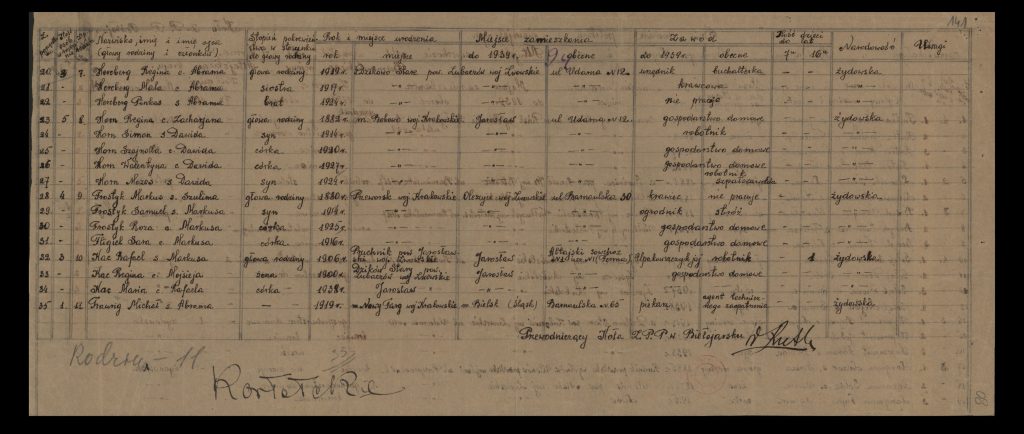 141
Nazwisko, imię i imię ojca (głowy rodziny i członków)
Stopień pokrewieństwa w stosunku do głowy rodziny
Rok i miejsce urodzenia
rok miejsce
Miejsce zamieszkania
do 1939 r. obecne
Zawód
do 1939 r. obecne
Ilość dzieci
do 7 lat 16 lat
Narodowość
Uwagi
20 3 7. Herzberg Regina c. Abrama głowa rodziny 1919 r. Dzikowo Stare pow. Lubaczów woj. Lwowskie ul Udarna N 12 urzędnik buchalterka żydowska
21 - - Herzberg Mala c Abrama siostra 1917 r. krawcowa
22 - - Herzberg Pinkas s Abrama brat 1924 r. nie pracuje
23 5 8. Horn Regina c. Zacharjana głowa rodziny 1882 r. m. Rakowo woj. Krakowskie Jarosław ul Udarna N 12. gospodarstwo domowe żydowska
24 - - Horn Simon s Dawida syn 1914 r. robotnik
25 - - Horn Szajndla c Dawida córka 1920 r. gospodarstwo domowe
26 - - Horn Walentyna c Dawida córka 1927 r. gospodarstwo domowe
27 - - Horn Mozes s Dawida syn 1929 r. robotnik
28 4 9. Frostyk Markus s. Szulima głowa rodziny 1880 r. Przeworsk woj Krakowskie Oleszyce woj Lwowskie ul Barnaulska 30 krawiec nie pracuje żydowska
29 - - Frostyk Samuel s. Markusa syn 1914 r. ogrodnik stróż
30 - - Frostyk Roza c Markusa córka 1925 r. gospodarstwo domowe
31 - - Fligiel Sara c. Markusa córka 1916 r. gospodarstwo domowe
32 3 10 Kac Rafael s Markusa głowa rodziny 1906 r. Pruchnik pow Jarosław Jarosław Ałtajski sowchoz robotnik 1 żydowska
33 - - Kac Regina c Mojżeja żona 1900 r. Dzików Stary pow. Lubaczów woj Lwowskie Jarosław gospodarstwo domowe
34 - - Kac Maria c Rafaela córka 1938 r. Jarosław
35 1 11 Frawnig Michał s. Abrama 1919 r. m. Nowy Targ woj Krakowskie m. Bielsk (Śląsk) Barnaulska N 65 piekarz agent technicznego zaopatrzenia żydowska
Przewodniczący Koła Z.P.P. w Białojarsku
Rodzin - 11.
35
88